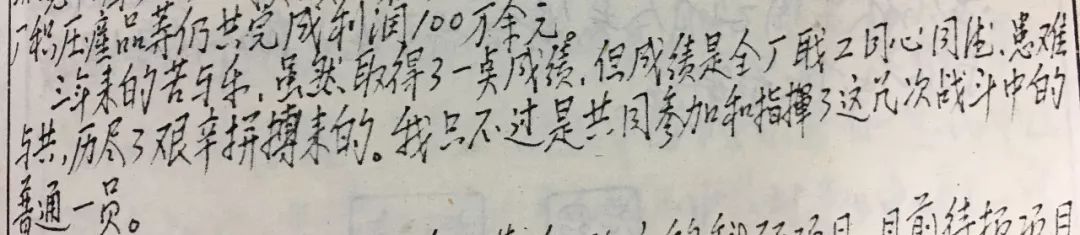 厂积压产品等仍共完成利润100万余元。
三年来的苦与乐,虽然取得了一点成绩,但成绩是全厂职工同心同德、患难
与共,历尽了艰辛拼搏来的。我只不过是共同参加和指挥了这几次战斗中的
普通一员。
科研项目,目前待批项目